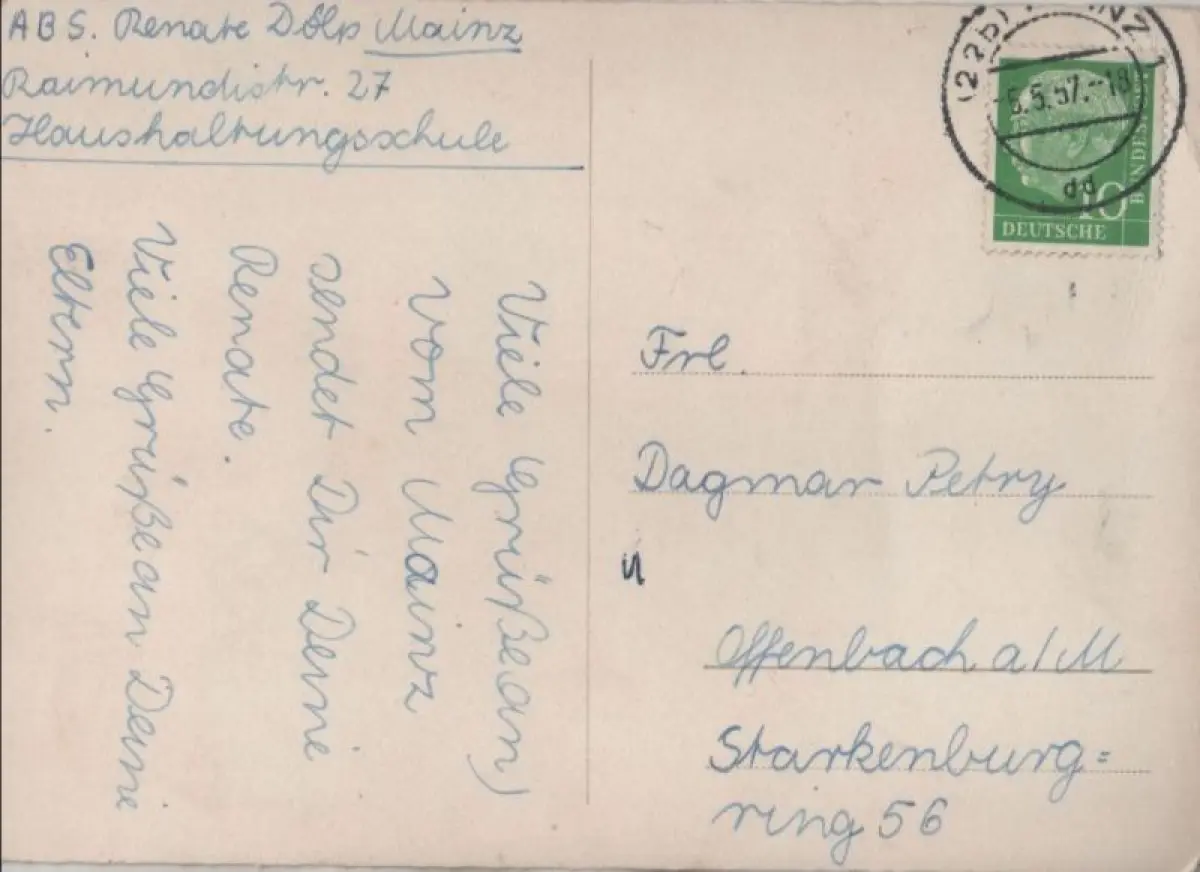 ABS. Renate Dölp Mainz
Raimundistr. 27
Haushaltungsschule
Viele Grüße an)
vom Mainz
sendet Dir Deine
Renate.
Viele Grüße an Deine
Eltern.
(22b) MAINZ 1
-6.5.57.-18
dd
10
DEUTSCHE
BUNDES
Frl.
Dagmar Petry
Offenbach a/M
Starkenburg=
ring 56